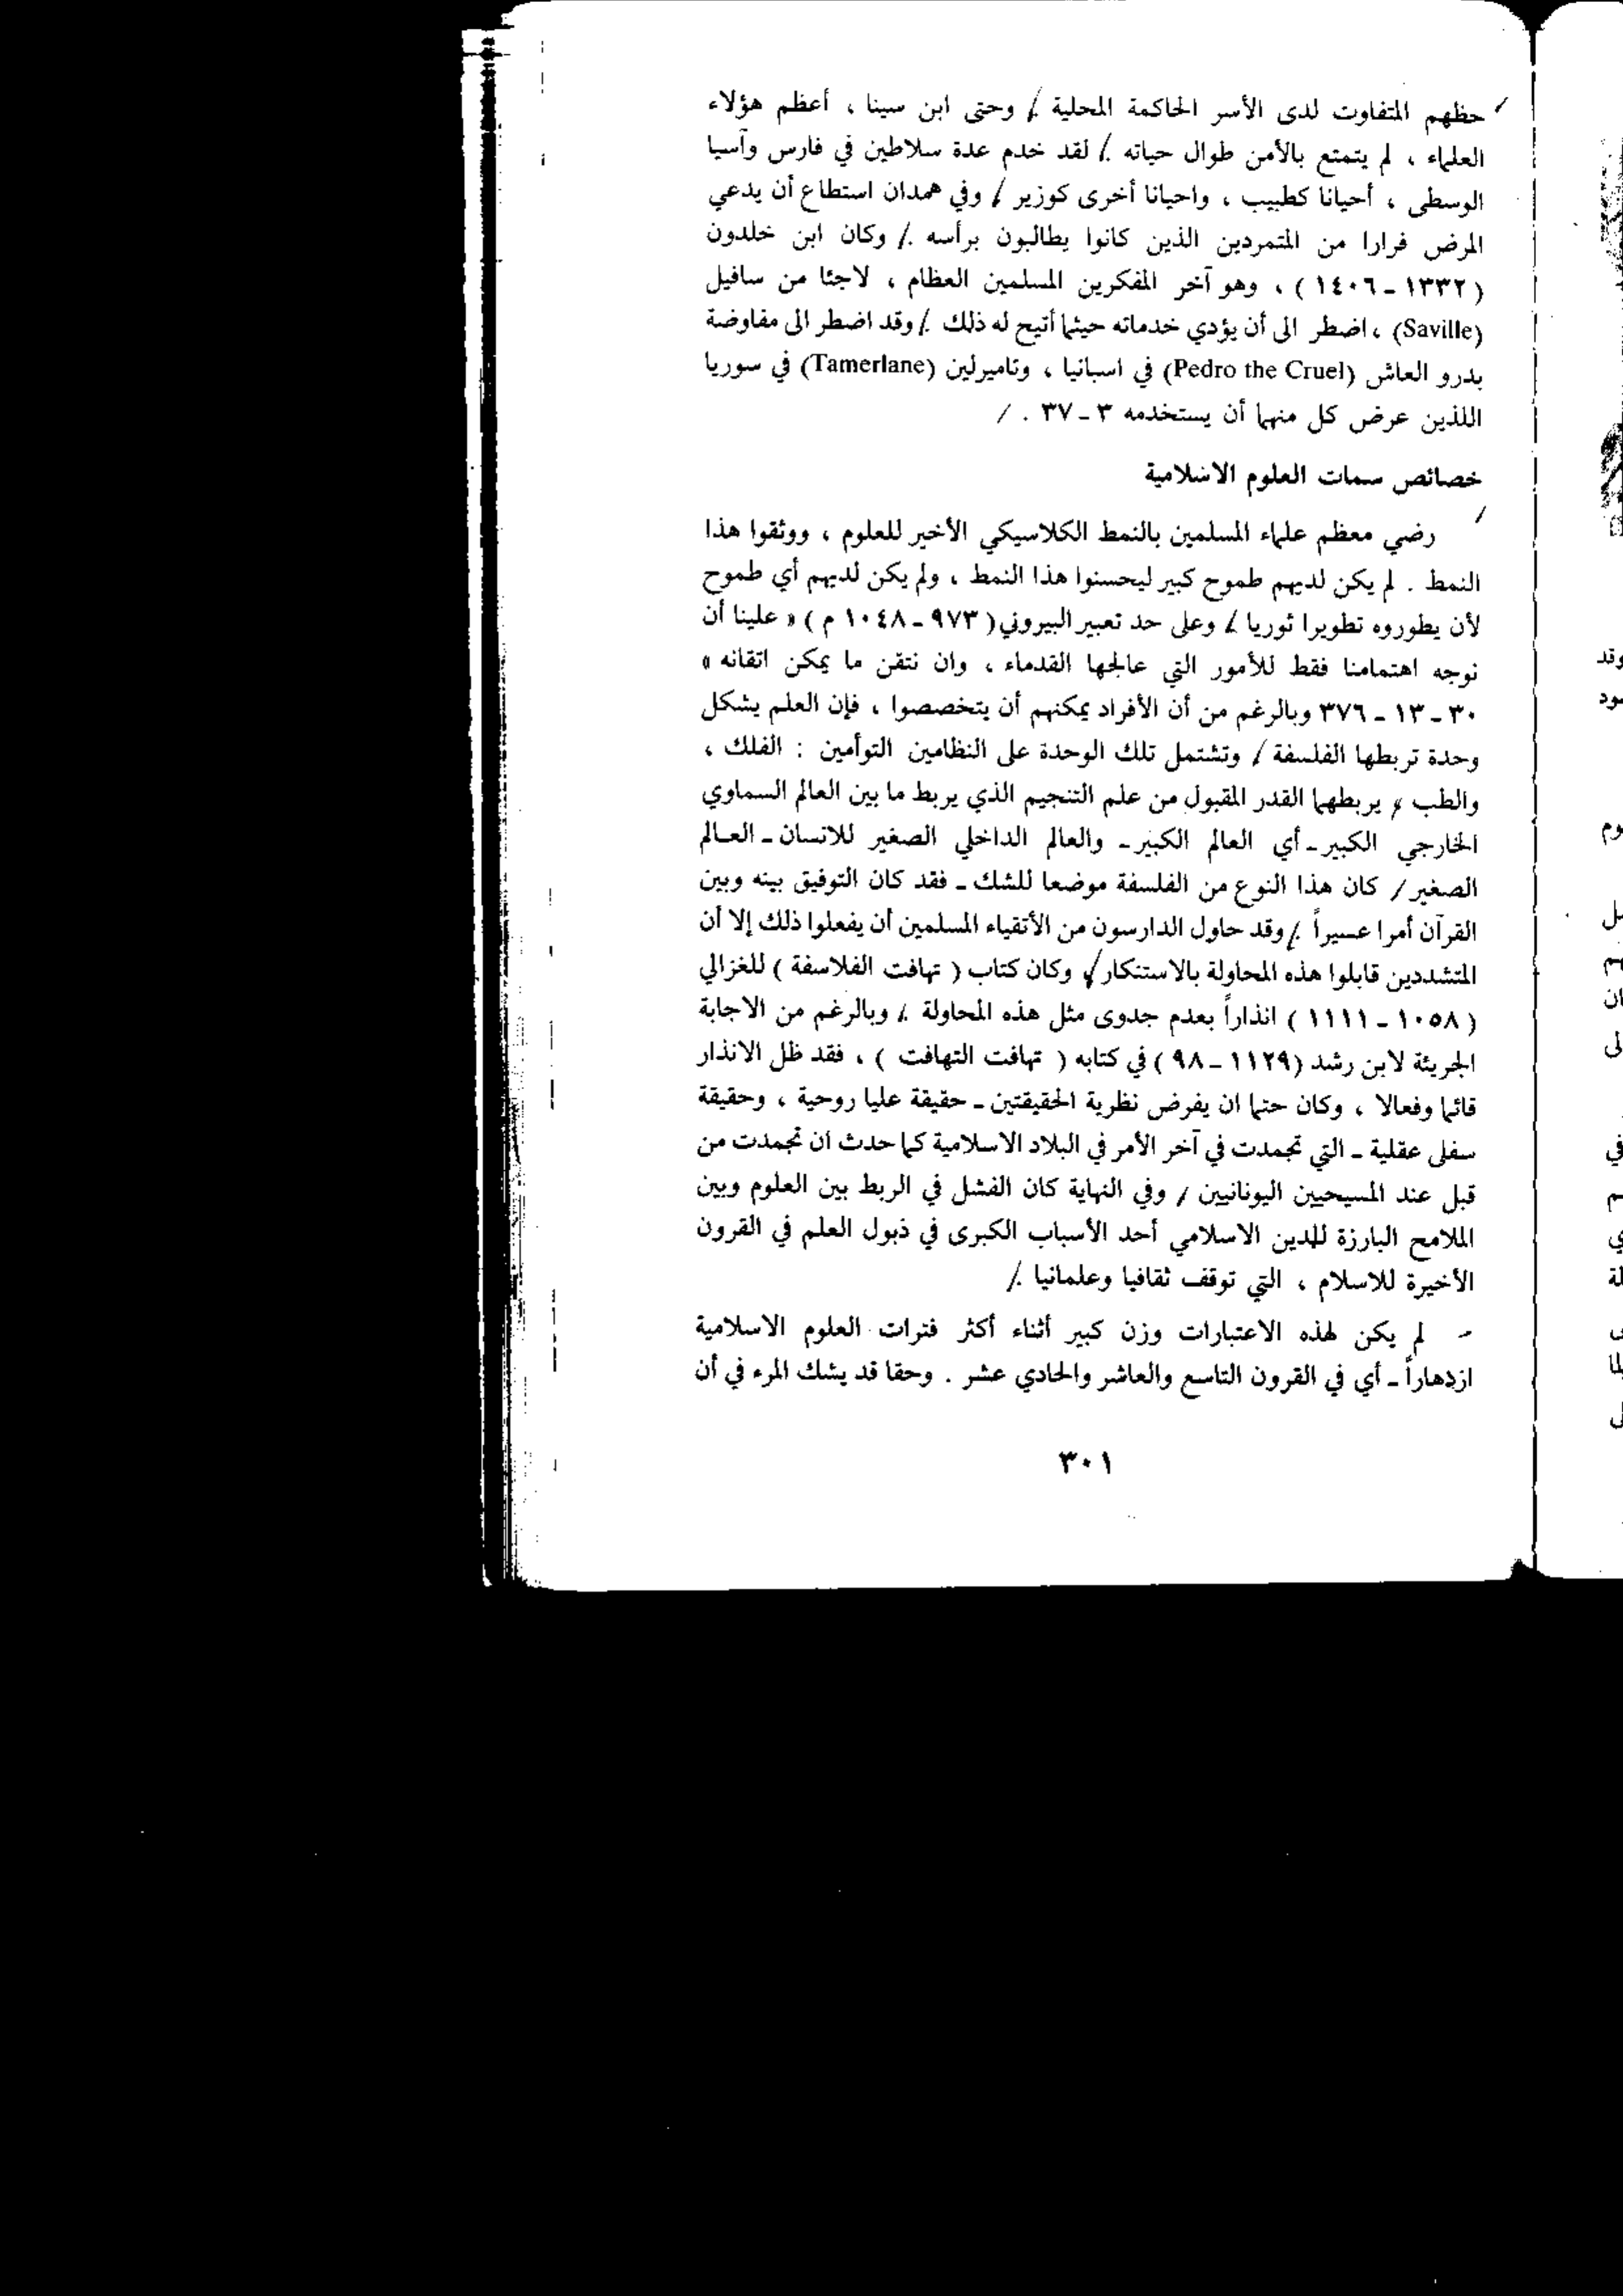 حظهم المتفاوت لدى الأسر الحاكمة المحلية / وحتى ابن سينا ، أعظم هؤلاء
العلماء ، لم يتمتع بالأمن طوال حياته ./ لقد خدم عدة سلاطين في فارس وآسيا
الوسطى ، أحيانا كطبيب ، واحيانا أخرى كوزير / وفي همدان استطاع أن يدعي
المرض فرارا من المتمردين الذين كانوا يطالبون برأسه ./ وكان ابن خلدون
( ١٣٣٢ - ١٤٠٦ ) ، وهو آخر المفكرين المسلمين العظام ، لاجئا من سافيل
(Saville) ، اضطر الى أن يؤدي خدماته حيثما أتيح له ذلك ./ وقد اضطر الى مفاوضة
بدرو العاش (Pedro the Cruel) في اسبانيا ، وتاميرلين (Tamerlane) في سوريا
اللذين عرض كل منهما أن يستخدمه ٣ - ٣٧ . /
خصائص سمات العلوم الاسلامية
رضي معظم علماء المسلمين بالنمط الكلاسيكي الأخير للعلوم ، ووثقوا هذا
النمط . لم يكن لديهم طموح كبير ليحسنوا هذا النمط ، ولم يكن لديهم أي طموح
لأن يطوروه تطويرا ثوريا ./ وعلى حد تعبير البيروني ( ٩٧٣ - ١٠٤٨ م ) « علينا أن
نوجه اهتمامنا فقط للأمور التي عالجها القدماء ، وان نتقن ما يمكن اتقانه »
٣٠ - ١٣ - ٣٧٦ وبالرغم من أن الأفراد يمكنهم أن يتخصصوا ، فإن العلم يشكل
وحدة تربطها الفلسفة / وتشتمل تلك الوحدة على النظامين التوأمين : الفلك ،
والطب ، يربطهما القدر المقبول من علم التنجيم الذي يربط ما بين العالم السماوي
الخارجي الكبير - أي العالم الكبير - والعالم الداخلي الصغير للانسان - العالم
الصغير / كان هذا النوع من الفلسفة موضعا للشك - فقد كان التوفيق بينه وبين
القرآن أمرا عسيراً ./ وقد حاول الدارسون من الأتقياء المسلمين أن يفعلوا ذلك إلا أن
المتشددين قابلوا هذه المحاولة بالاستنكار / وكان كتاب ( تهافت الفلاسفة ) للغزالي
( ١٠٥٨ - ١١١١ ) انذاراً بعدم جدوى مثل هذه المحاولة ./ وبالرغم من الاجابة
الجريئة لابن رشد (١١٢٩ - ٩٨ ) في كتابه ( تهافت التهافت ) ، فقد ظل الانذار
قائما وفعالا ، وكان حتما ان يفرض نظرية الحقيقتين - حقيقة عليا روحية ، وحقيقة
سفلى عقلية - التي تجمدت في آخر الأمر في البلاد الاسلامية كما حدث ان تجمدت من
قبل عند المسيحيين اليونانيين / وفي النهاية كان الفشل في الربط بين العلوم وبين
الملامح البارزة للدين الاسلامي أحد الأسباب الكبرى في ذبول العلم في القرون
الأخيرة للاسلام ، التي توقف ثقافيا وعلمانيا ./
- لم يكن لهذه الاعتبارات وزن كبير أثناء أكثر فترات العلوم الاسلامية
ازدهاراً - أي في القرون التاسع والعاشر والحادي عشر . وحقا قد يشك المرء في أن
٣٠١